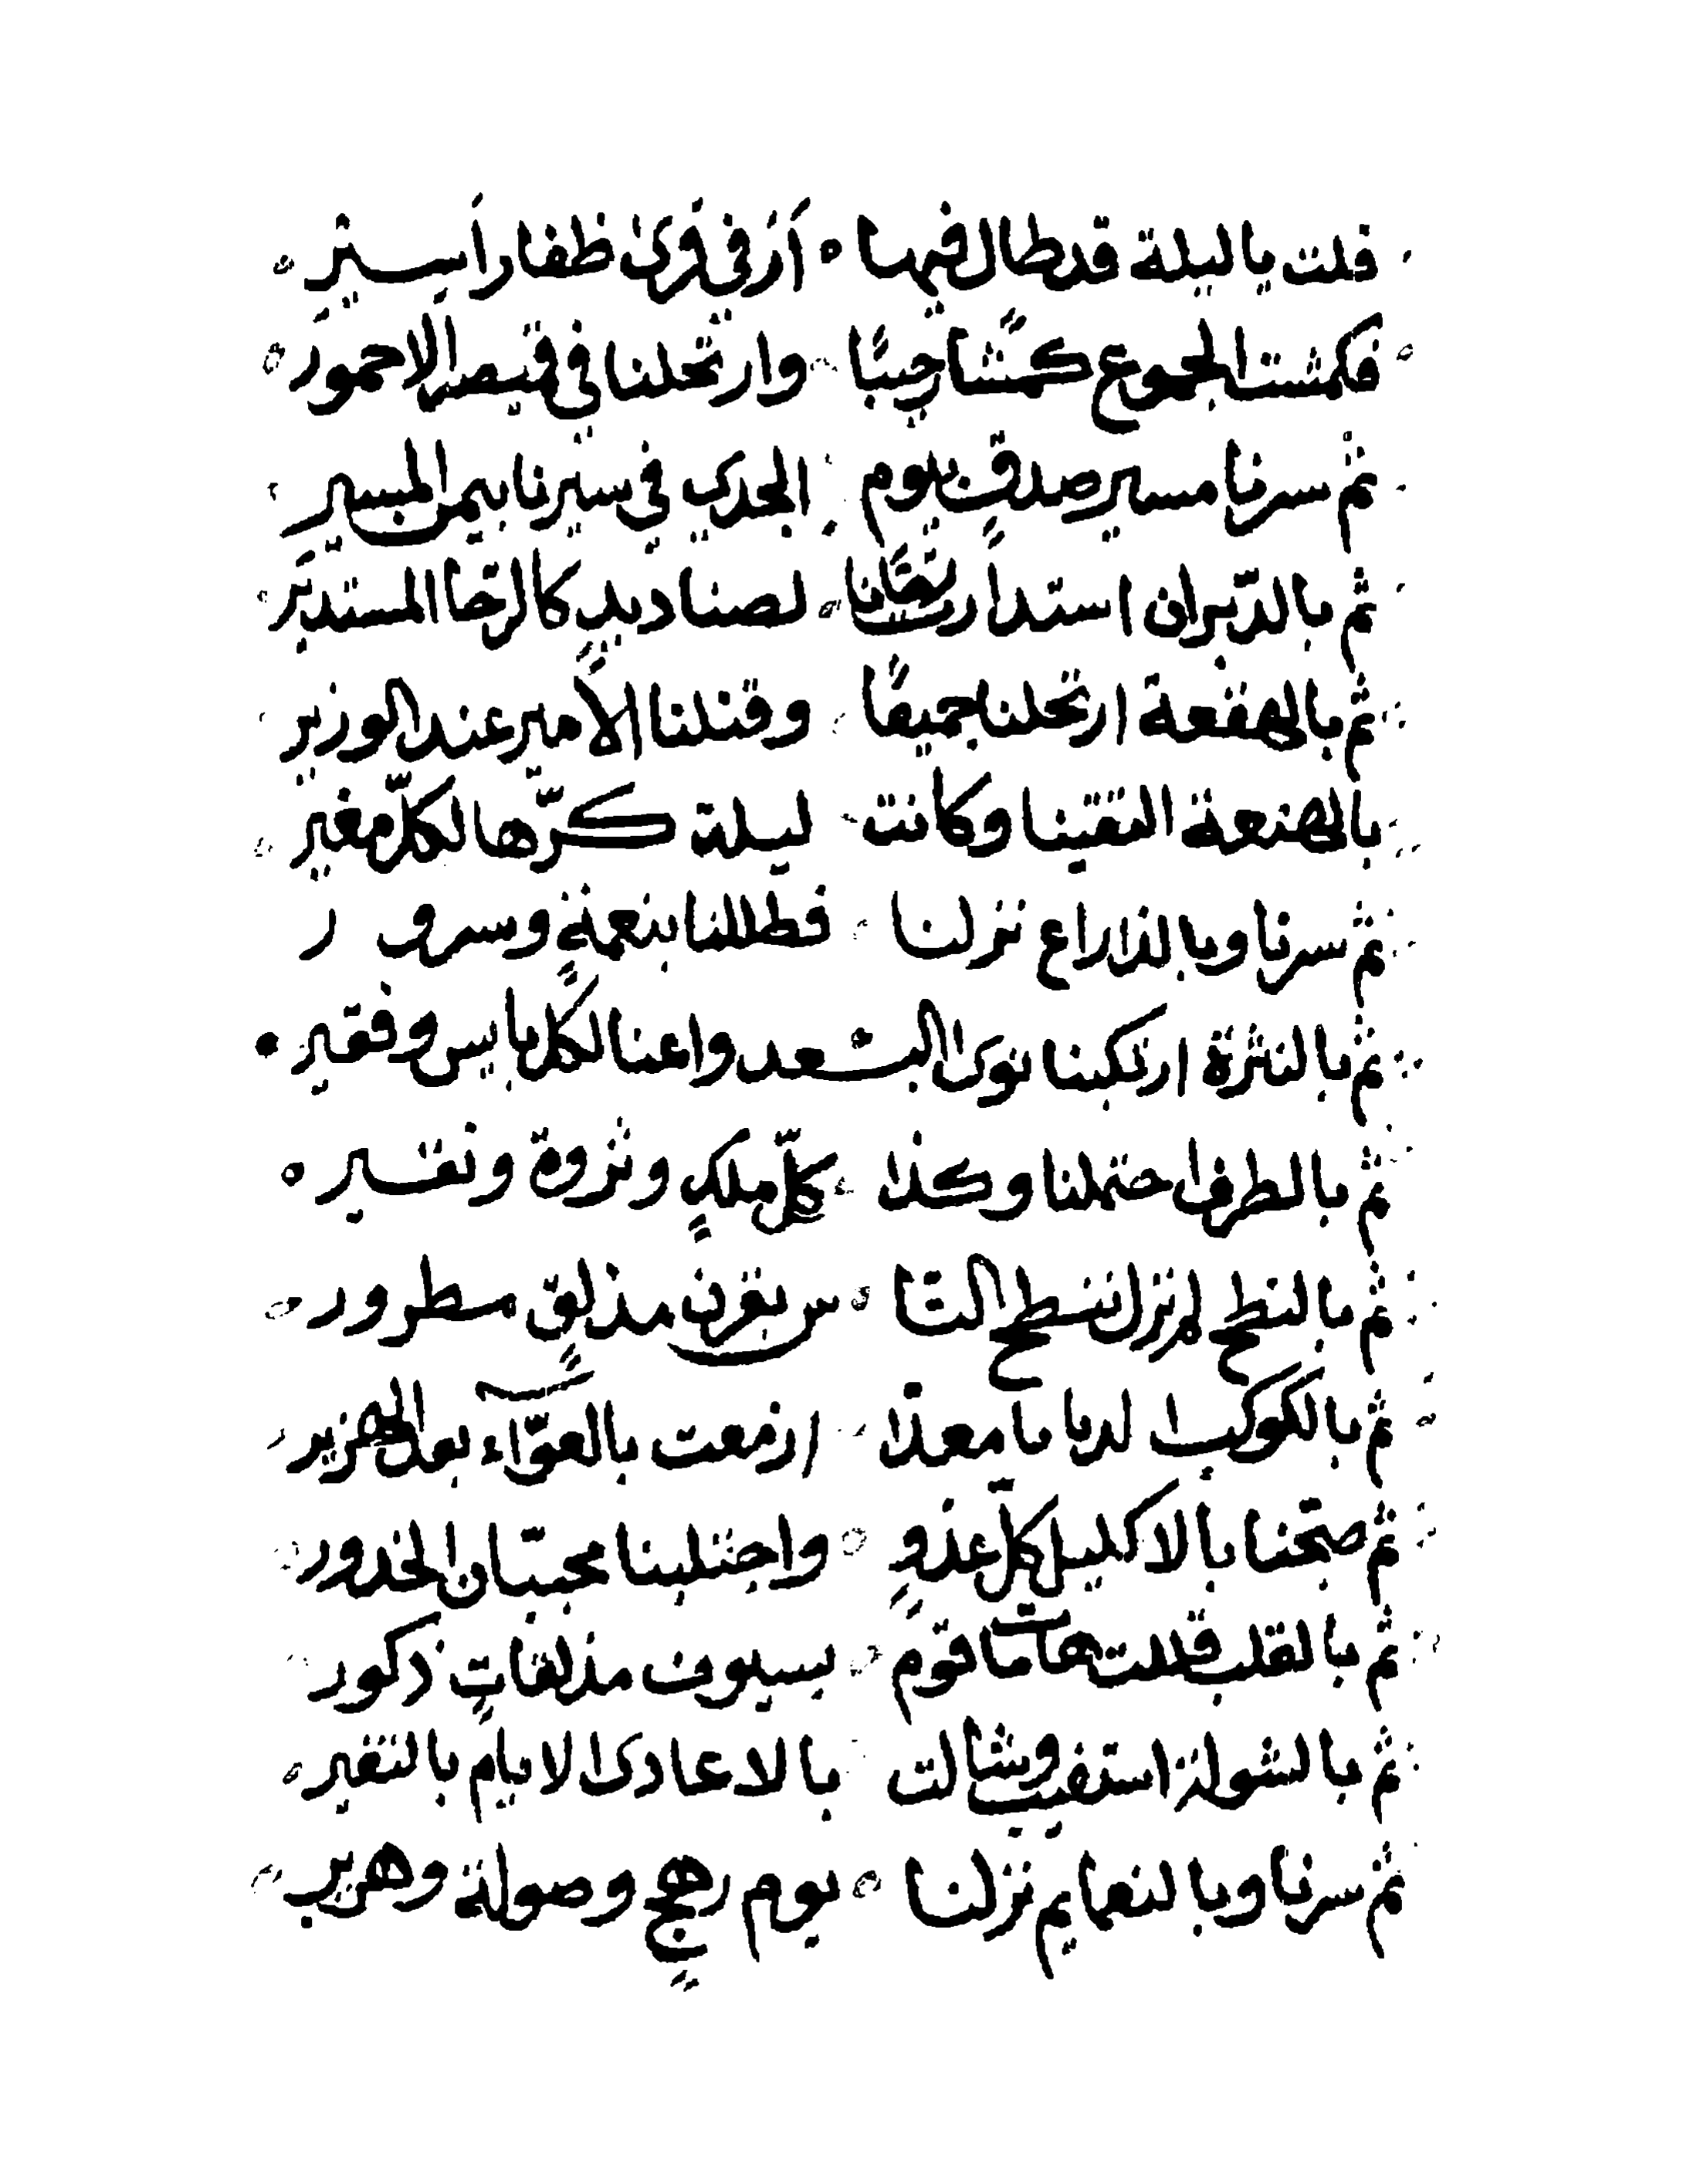 قلت يا ليلة قد طال فيها ۰ أر في قرى ظفار أسير ۰
فكمشت الجموع كمشًا رحيبًا وارتحلنا في قميصر الاحمور ۰
ثم سرنا مسير صدق بيوم الجدي في سيرنا بيمن المسير
ثم بالدّبران استدارت رحانا لصناديد كالرّحا المستدير
ثم بالهقعة ارتحلنا جميعًا وقتلنا الأمير عند الوزير
بالهنعة التقينا وكانت ليلة كرّها لكلّ مغير
ثم سرنا وبالذراع نزلنا فظللنا بنعمةٍ وسرور
ثم بالنثرة ارتكبنا نوى السعد واعنا لكل بايس وفقير ۰
ثم بالطرف احتملنا وكذا كلّ ملكٍ وثروة ونقير ۰
ثم بالنطح لم نزل ننطح النا س بقرن مذلقٍ مطرور ۰
ثم بالكوكب لدنا يا معدّا ازمعت بالعوّاء بعد الهزير
ثم صبّحنا بالاكليل كل عدوٍ واجتلبنا مخبّآن الخدور
ثم بالقلب فللت هامات قوم بسيوف مذلقاتٍ ذكور
ثم بالشولة استفيـ وشالت بالاعادى الايام بالتغير ۰
ثم سرنا وبالنعايم نزلنا ۰ يوم رهجٍ وصولة وهرير ۰